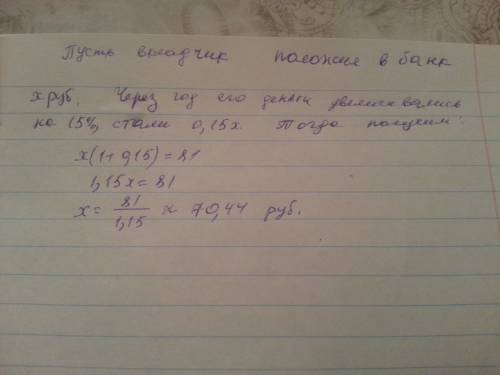 Пусть вкладчик положил в банк
x руб. Через год его деньги увеличивались
на 15%, стали 0,15x. Тогда получим:
x(1+0,15)=81
1,15x=81
x= 81/1,15 ≈ 70,44 руб.